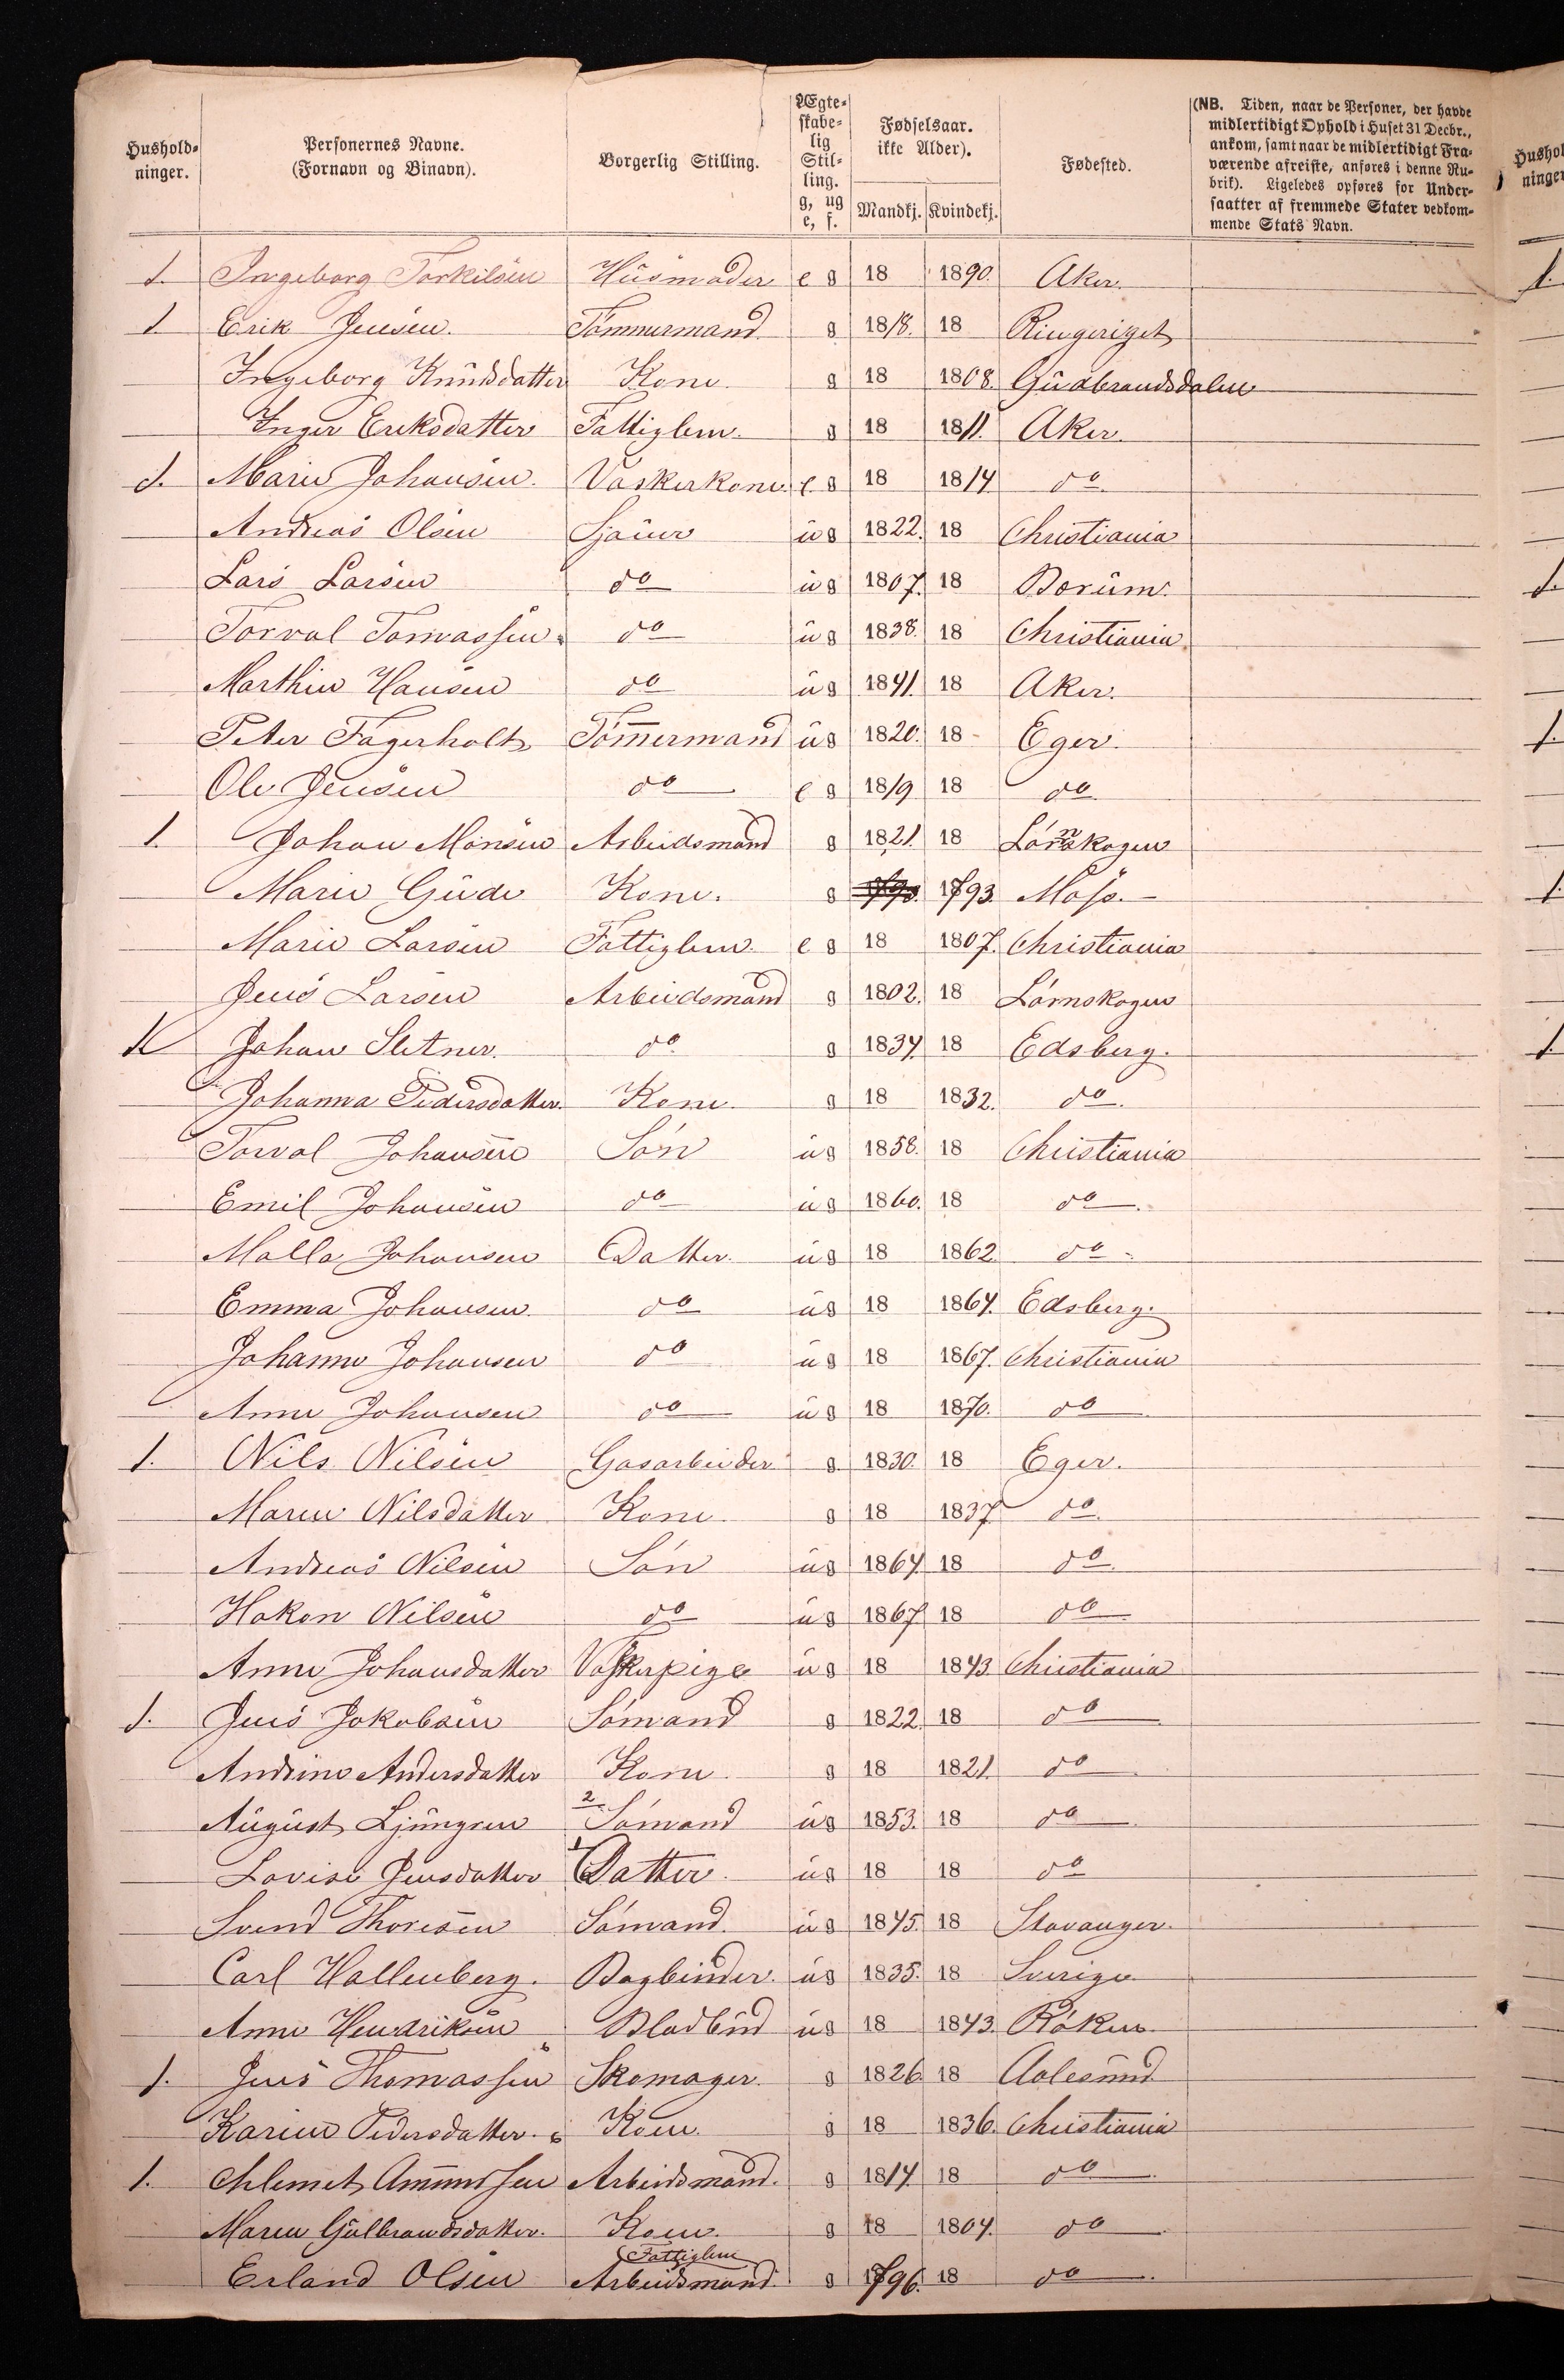 Hushold-
ninger.
Personernes Navne.
(Fornavn og Binavn).
Borgerlig Stilling.
Ægte-
skabe-
lig
Stil-
ling.
g, ug
e, s.
Fødselsaar.
ikke Alder).
Mandkj. Kvindekj.
Fødested.
(NB. Tiden, naar de Personer, der havde
midlertidigt Ophold i Huset 31 Decbr.,
ankom, samt naar de midlertidigt Fra-
værende afreiste, anføres i denne Ru-
brik). Ligeledes opføres for Under-
saatter af fremmede Stater vedkom-
mende Stats Navn.
1. Ingeborg Torkilsen Husmoder e g 18 1890. Aker.
1 Erik Jensen. Tømmermand g 1818. 18 Ringeriget
Ingeborg Knudsdatter Kone g 18 1808. Gudbrandsdalen
Inger Eriksdatter Fattiglem. g 18 1811. Aker.
1. Marie Johansen. Vaskerkone e g 18 1814 do
Andreas Olsen Sjauer u g 1822. 18 Christiania
Lars Larsen do u g 1807. 18 Borum.
Torval Tomassen do u g 1838. 18 Christiania
Marthin Hansen do u g 1841. 18 Aker.
Peter Fagerholt Tømermand u g 1820. 18 Eger.
Ole Jensen do e g 1819 18 do
1. Johan Monsen Arbeidsmand g 1821. 18 Lørnskogen
Marie Gude Kone. g 1793. Moss.
Marie Larsen Fattiglem. e g 18 1807. Christiania
Jens Larsen Arbeidsmand g 1802. 18 Lørnskogen
1 Johan Sletner. do g 1834. 18 Edsberg.
Johanna Pedersdatter. Kone. g 18 1832. do
Torval Johansen Søn u g 1858. 18 Christiania
Emil Johansen do u g 1860. 18 do
Malla Johansen Datter. u g 18 1862 do
Emma Johansen do u g 18 1864. Edsberg.
Johanne Johansen do u g 18 1867. Christiania
Anne Johansen do u g 18 1870. do
1. Nils Nilsen Gasarbeider g. 1830. 18 Eger.
Maren Nilsdatter Kone. g 18 1837 do
Andreas Nilsen Søn u g 1864 18 do
Hakon Nilsen do u g 1867 18 do
Anne Johansdatter Vaskerpige u g 18 1843 Christiania
1. Jens Jakobsen Sømand g 1822. 18 do
Andrine Andersdatter Kone. g 18 1821. do
August Ljungren 2 Sømand u g 1853. 18 do
Lovise Jensdatter 1 Datter. u g 18 18 do
Svend Thoresen Sømand. u g 1845. 18 Stavanger.
Carl Hallenberg. Bogbinder. u g 1835. 18 Sverige
Anne Hendriksen Bladbud u g 18 1843. Røken
1. Jens Thomassen Skomager. g 1826 18 Aalesund
Karine Pedersdatter. Kone. g 18 1836. Christiania
1. Chlemet Amundsen Arbeidsmand. g 1814. 18 do
Maren Gulbrandsdatter. Kone. g 18 1804. do
Fattiglem
Erland Olsen Arbeidsmand. g 1796. 18 do